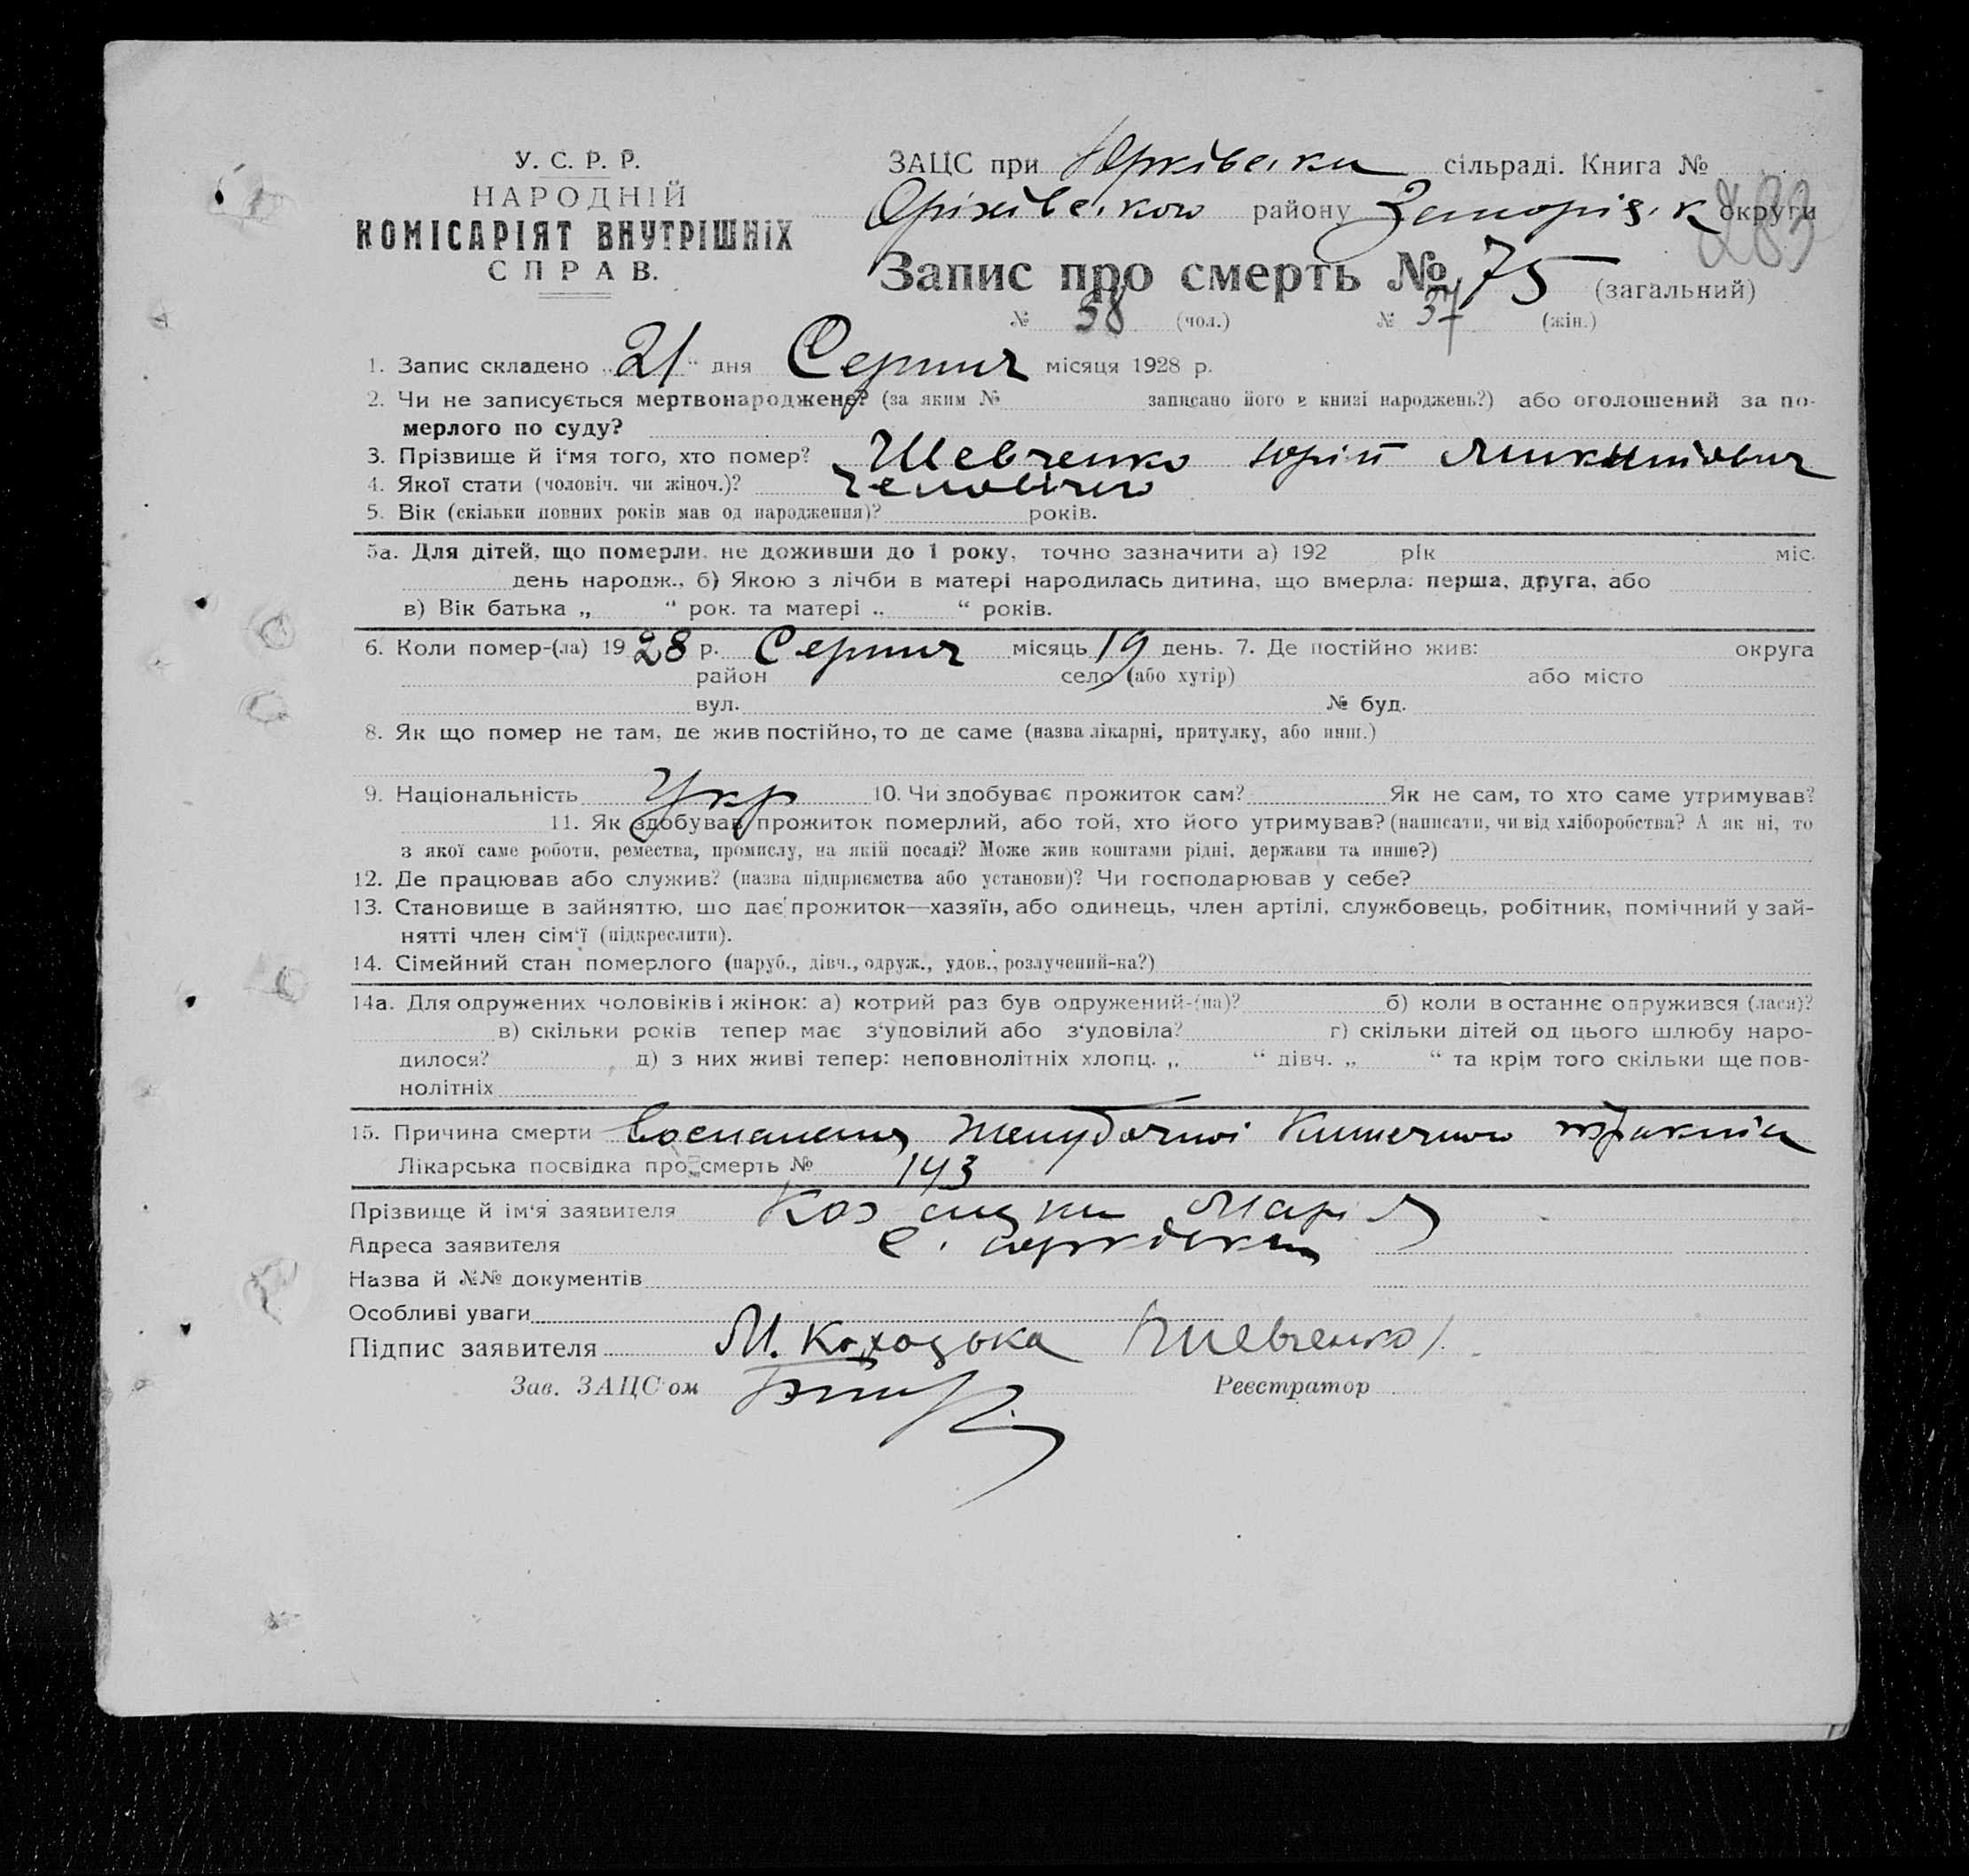 У. С. Р. Р.
НАРОДНІЙ
КОМІСАРІЯТ ВНУТРІШНІХ
СПРАВ.
ЗАЦС при Юрківськ сільраді. Книга №
Оріхівського району Запоріз.к округи
283
Запис про смерть № 75 (загальний)
№ 38 (чол.) № 37 (жін.)
1. Запис складено „21“ дня Серпня місяця 1928 р.
2. Чи не записується мертвонароджене? (за яким № записано його в книзі народжень?) або оголошений за по-
мерлого по суду?
3. Прізвище й і'мя того, хто помер? Шевченко Юрій Микитович
4. Якої стати (чоловіч. чи жіноч.)?
5. Вік (скільки повних років мав од народження)? років.
5а. Для дітей, що померли, не доживши до 1 року, точно зазначити а) 192 рік міс.
день народж., б) Якою з лічби в матері народилась дитина, що вмерла: перша, друга, або
в) Вік батька „ “ рок. та матері „ “ років.
6. Коли помер-(ла) 1928 р. Серпня місяць 19 день. 7. Де постійно жив: округа
район село (або хутір) або місто
вул. № буд.
8. Як що помер не там, де жив постійно, то де саме (назва лікарні, притулку, або инш.)
9. Національність Укр 10. Чи здобуває прожиток сам? Як не сам, то хто саме утримував?
11. Як здобував прожиток померлий, або той, хто його утримував? (написати, чи від хліборобства? А як ні, то
з якої саме роботи, ремества, промислу, на якій посаді? Може жив коштами рідні, держави та инше?)
12. Де працював або служив? (назва підприємства або установи)? Чи господарював у себе?
13. Становище в зайняттю, що дає прожиток—хазяїн, або одинець, член артілі, службовець, робітник, помічний у зай-
нятті член сім'ї (підкреслити).
14. Сімейний стан померлого (паруб., дівч., одруж., удов., розлучений-на?)
14а. Для одружених чоловіків і жінок: а) котрий раз був одружений-(на)? б) коли востаннє одружився (лася)?
в) скільки років тепер має з'удовілий або з'удовіла? г) скільки дітей од цього шлюбу наро-
дилося? д) з них живі тепер: неповнолітніх хлопц. „ “ дівч. „ “ та крім того скільки ще пов-
нолітніх
15. Причина смерти
Лікарська посвідка про смерть № 143
Прізвище й ім'я заявителя Марія
Адреса заявителя с.
Назва й №№ документів
Особливі уваги
Підпис заявителя М. Шевченко
Зав. ЗАЦС'ом Реєстратор